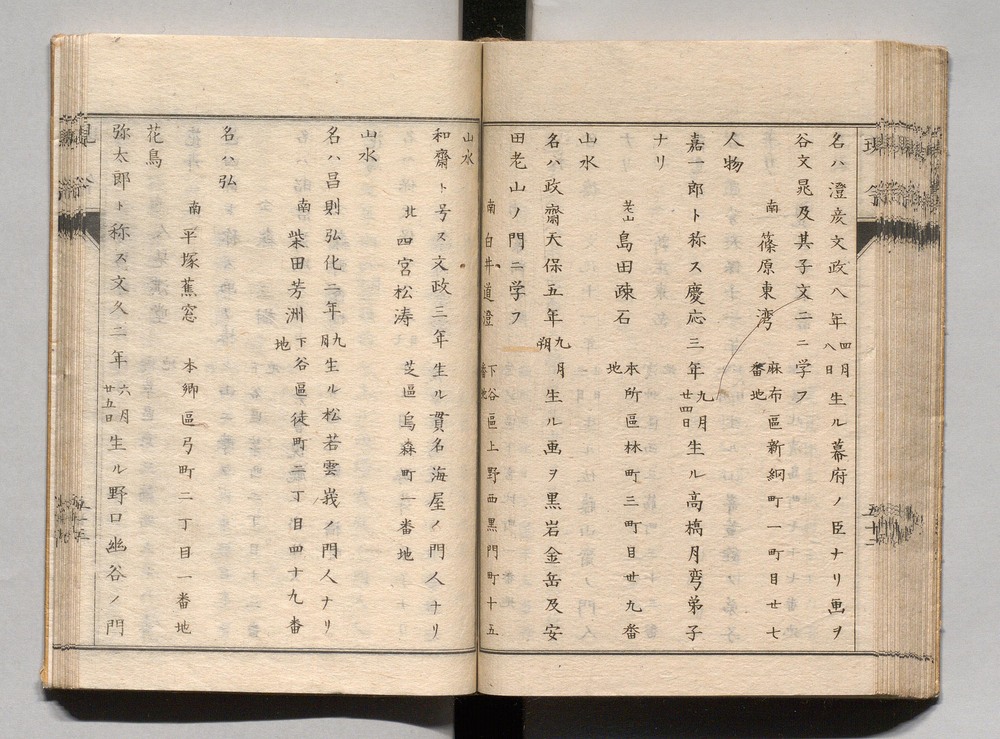 名ハ澄彦文政八年四月八日生ル幕府ノ臣ナリ画ヲ
谷文晁及其子文二ニ学フ
南 篠原東湾 麻布區新網町一町目廿七番地
人物
嘉一郎ト称ス慶応三年九月廿四日生ル高橋月弯弟子
ナリ
老山 島田疎石 本所區林町三町目丗九番地
山水
名ハ政齋天保五年九月朔生ル画ヲ黒岩金岳及安
田老山ノ門ニ学フ
南 白井道澄 下谷區上野西黒門町十五番地
山水
和齋ト号ス文政三年生ル貫名海屋ノ門人ナリ
北 四宮松涛 芝區烏森町一番地
山水
名ハ昌則弘化二年九月生ル松若雲峩ノ門人ナリ
南 柴田芳洲 下谷區徒町二丁目四十九番地
名ハ弘
南 平塚蕉窓 本郷區弓町二丁目一番地
花鳥
弥太郎ト称ス文久二年六月廿五日生ル野口幽谷ノ門